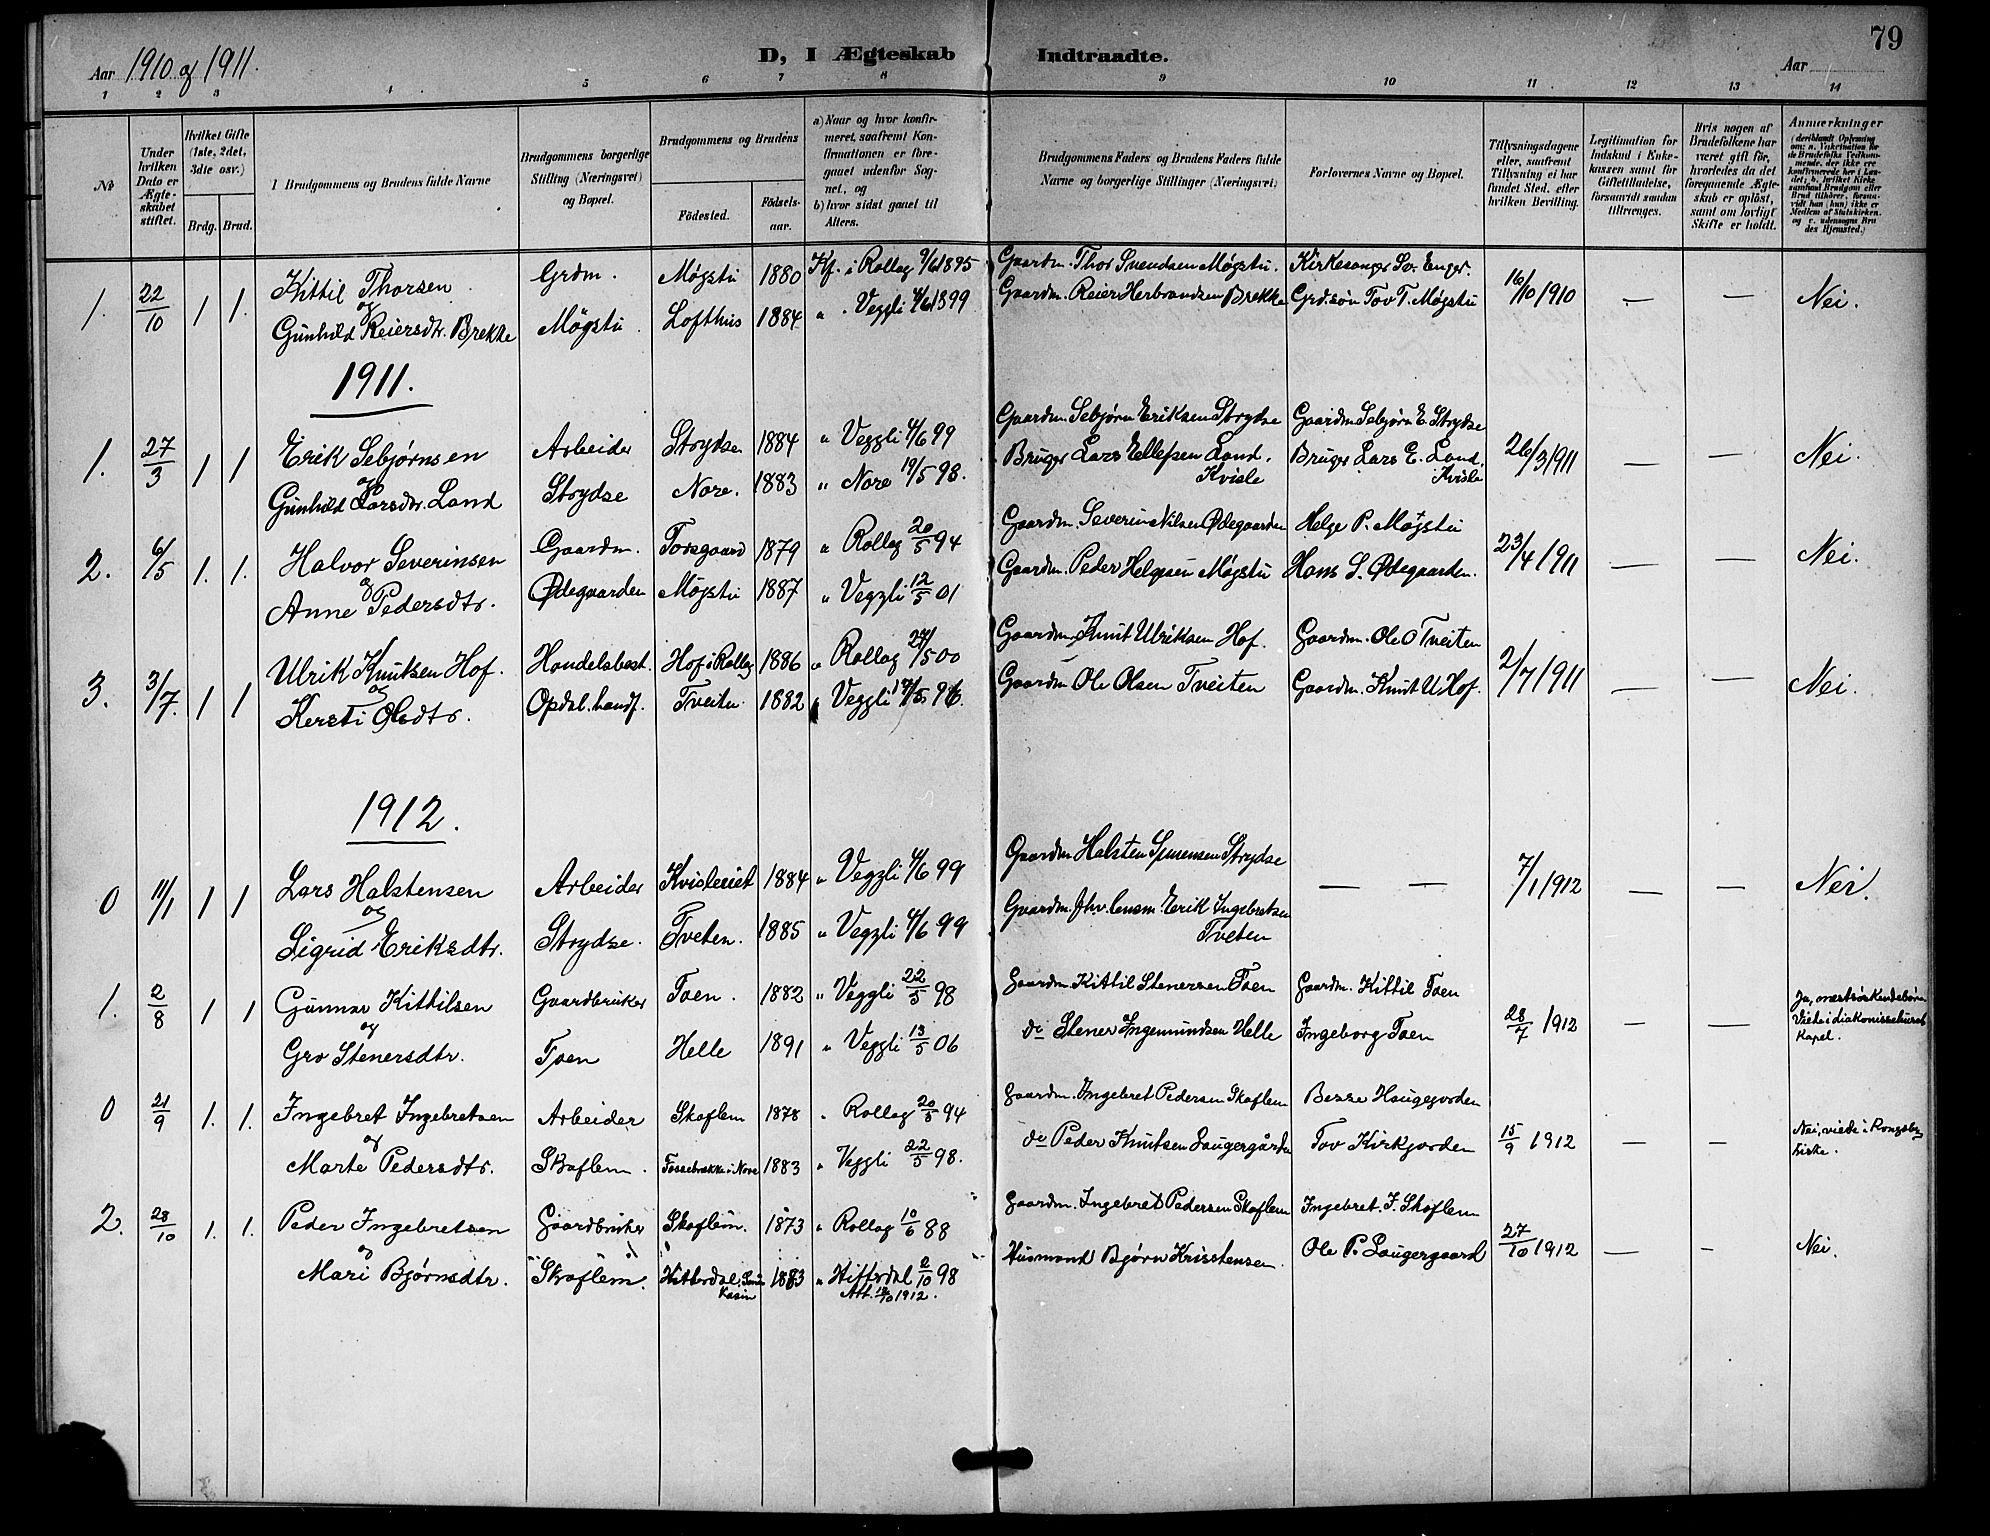 79
Aar 1910 og 1911.
D, I Ægteskab Indtraadte.
Aar
1 2 3 4 5 6 7 8 9 10 11 12 13 14
No
Under hvilken Dato er Ægteskabet stiftet.
Hvilket Gifte (1ste, 2det, 3die osv.)
Brdg. Brud.
I Brudgommens og Brudens fulde Navne
Brudgommens borgerlige Stilling (Næringsvei) og Bopæl.
Brudgommens og Brudens
Födested. Födselsaar.
a) Naar og hvor konfirmeret, saafremt Konfirmationen er foregaaet udenfor Sognet, og
b) hvor sidst gaaet til Alters.
Brudgommens Faders og Brudens Faders fulde Navne og borgerlige Stillinger (Næringsvei)
Forlovernes Navne og Bopæl.
Tillysningsdagene eller, saafremt Tillysning ei har fundet Sted, efter hvilken Bevilling.
Legitimation for Indskud i Enkekassen samt for Giftetilladelse, forsaavidt saadan tiltrænges.
Hvis nogen af Brudefolkene har været gift för, hvorledes da det foregaaende Ægteskab er oplöst, samt om lovligt Skifte er holdt.
Anmærkninger
1. 22/10 1 1. Kittil Thorsen Grdm. Møgstu 1880 Kf. i Rollag 9/6 1895 Gaardm. Thor Svendsen Møgstu. Kirkesanger Sv. Enger. 16/10 1910 — — Nei.
og
Gunhild Reiersdtr. Brekke Møgstu. Lofthus 1884 " Veggli 4/6 1899 Gaardm. Reier Herbrandsen Brekke Grd.søn Tov T. Møgstu
1911.
1. 27/3 1 1 Erik Sebjørnsen Arbeider Strydse 1884 " Veggli 4/6 99 Gaardm Sebjørn Eriksen Strydse Gaardm Sebjørn E. Strydse 26/3 1911 — — Nei.
og
Gunhild Larsdtr. Land Strydse Nore. 1883 " Nore 19/5 98. Bruger Lars Ellefsen Land. Kvisle Bruger Lars E. Land. Kvisle
2. 6/5 1. 1. Halvor Severinsen Gaardm. Torsgaard 1879 " Rollag 20/5 94 Gaardm. Severin Nilsen Ødegaarden Helge P. Møgstu 23/4 1911 — — Nei.
og
Anne Pedersdtr. Ødegaarden Møgstu 1887 " Veggli 12/5 01 Gaardm. Peder Helgesen Møgstu Hans S. Ødegaarden.
3. 3/7. 1 1 Ulrik Knutsen Hof. Handelsbest. Hof i Rollag 1886 " Rollag 27/5 00 Gaardm. Knut Ulriksen Hof. Gaardm. Ole O Tveiten 2/7 1911 — — Nei.
og
Kersti Olsdtr. Opdal. handf. Tveiten 1882 " Veggli 17/5 96. Gaardm Ole Olsen Tveiten Gaardm. Knut U. Hof.
1912.
0 11/1 1 1 Lars Halstensen Arbeider Kvisleeiet 1884 " Veggli 4/6 99 Gaardm Halsten Simensen Strydse — — 7/1 1912 — — Nei.
og
Sigrid Eriksdtr. Strydse. Tveten. 1885 " Veggli 4/6 99 Gaardm. fhv. lensm. Erik Ingebretsen Tveten
1. 2/8 1 1 Gunnar Kittilsen Gaardbruker Toen. 1882 " Veggli 22/5 98 Gaardm. Kittil Stenersen Toen Gaardm. Kittil Toen 28/7 1912 — — Ja, næstsøskendebørn. Viet i diakonissehusets kapel.
og
Gro Stenersdtr. Toen Helle 1891 " Veggli 13/5 06 do Stener Ingemundsen Helle Ingeborg Toen
0 21/9 1. 1. Ingebret Ingebretsen Arbeider Skaflem 1878 " Rollag 20/5 94 Gaardm. Ingebret Pedersen Skaflem Besse Haugejorden 15/9 1912 — — Nei, viede i Kongsberg kirke.
og
Marte Pedersdtr. Skaflem. Fossebrekke i Nore 1883 " Veggli 22/5 98. do Peder Knutsen Laugergården Tov Kirkjorden
2. 28/10 1. 1. Peder Ingebretsen Gaardbruker Skaflem. 1873 " Rollag 10/6 88 Gaardm. Ingebret Pedersen Skaflem Ingebret. I. Skaflem 27/10 1912 — — Nei.
og
Mari Bjørnsdtr. Skaflem. Hitterdal 1883 " Hitterdal 2/10 98 Att. 18/10 1912. Husmand Bjørn Kristensen Ole P. Laugergaard